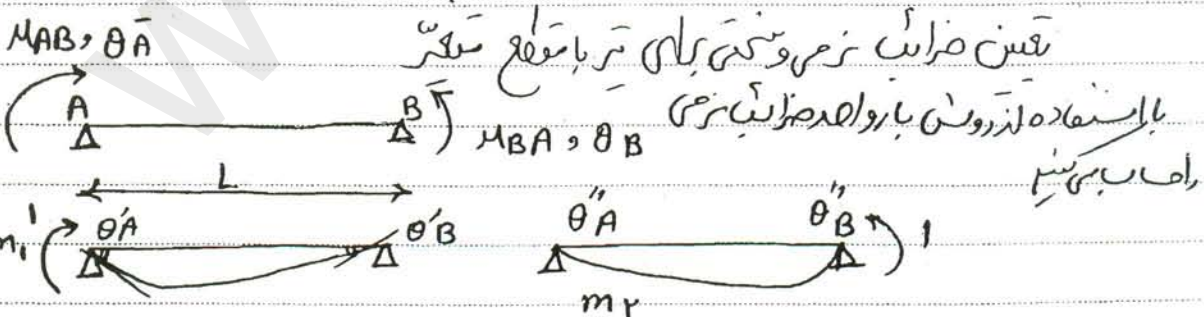 M_AB , θ_A
تعیین ضرائب نرمی و سختی برای تیر با مقطع متغیر
A B
M_BA , θ_B
با استفاده از روش بار واحد ضرائب نرمی
را حساب می کنیم
L
1 θ'A θ'B θ''A θ''B 1
m₁ m۲